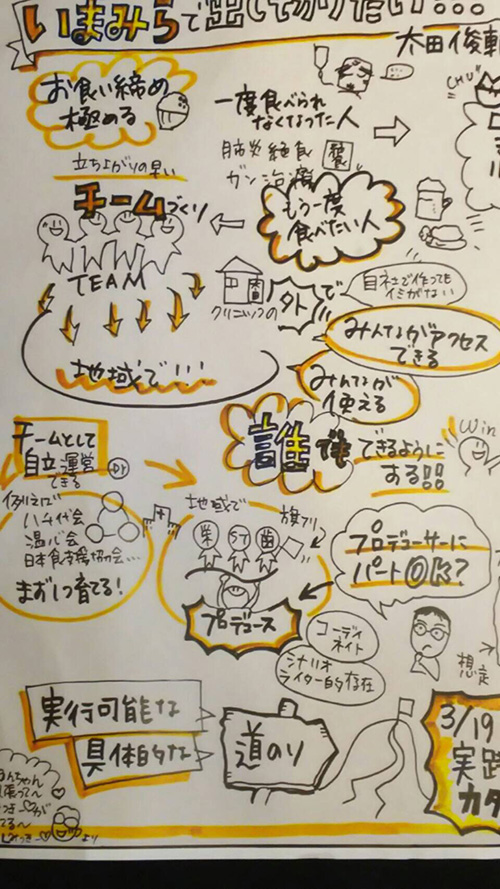 いまみらで出してやりたい!・・・
太田俊
お食い締め
極める
立ち上がりの早い
一度食べられ
なくなった人
肺炎 絶食
ガン治療
CHU
チームづくり
もう一度
食べたい人
TEAM
クリニックの
外で
自社で作っても
イミがない
みんながアクセス
できる
みんなが
使える
地域で・・・
誰でも
できるように
する
Win
チームとして
自立運営
できる
Dr
例えば
ハチ代会
温パ会
日本食支援協力会…
まず1つ育てる!
地域で
栄
ST
歯
旗フリ
プロデュース
プロデューサーに
パート◎Kは?
コーディ
ネイト
シナリオ
ライター的存在
想定
実行可能な
具体的な
道のり
3/19
実践
カタ
より